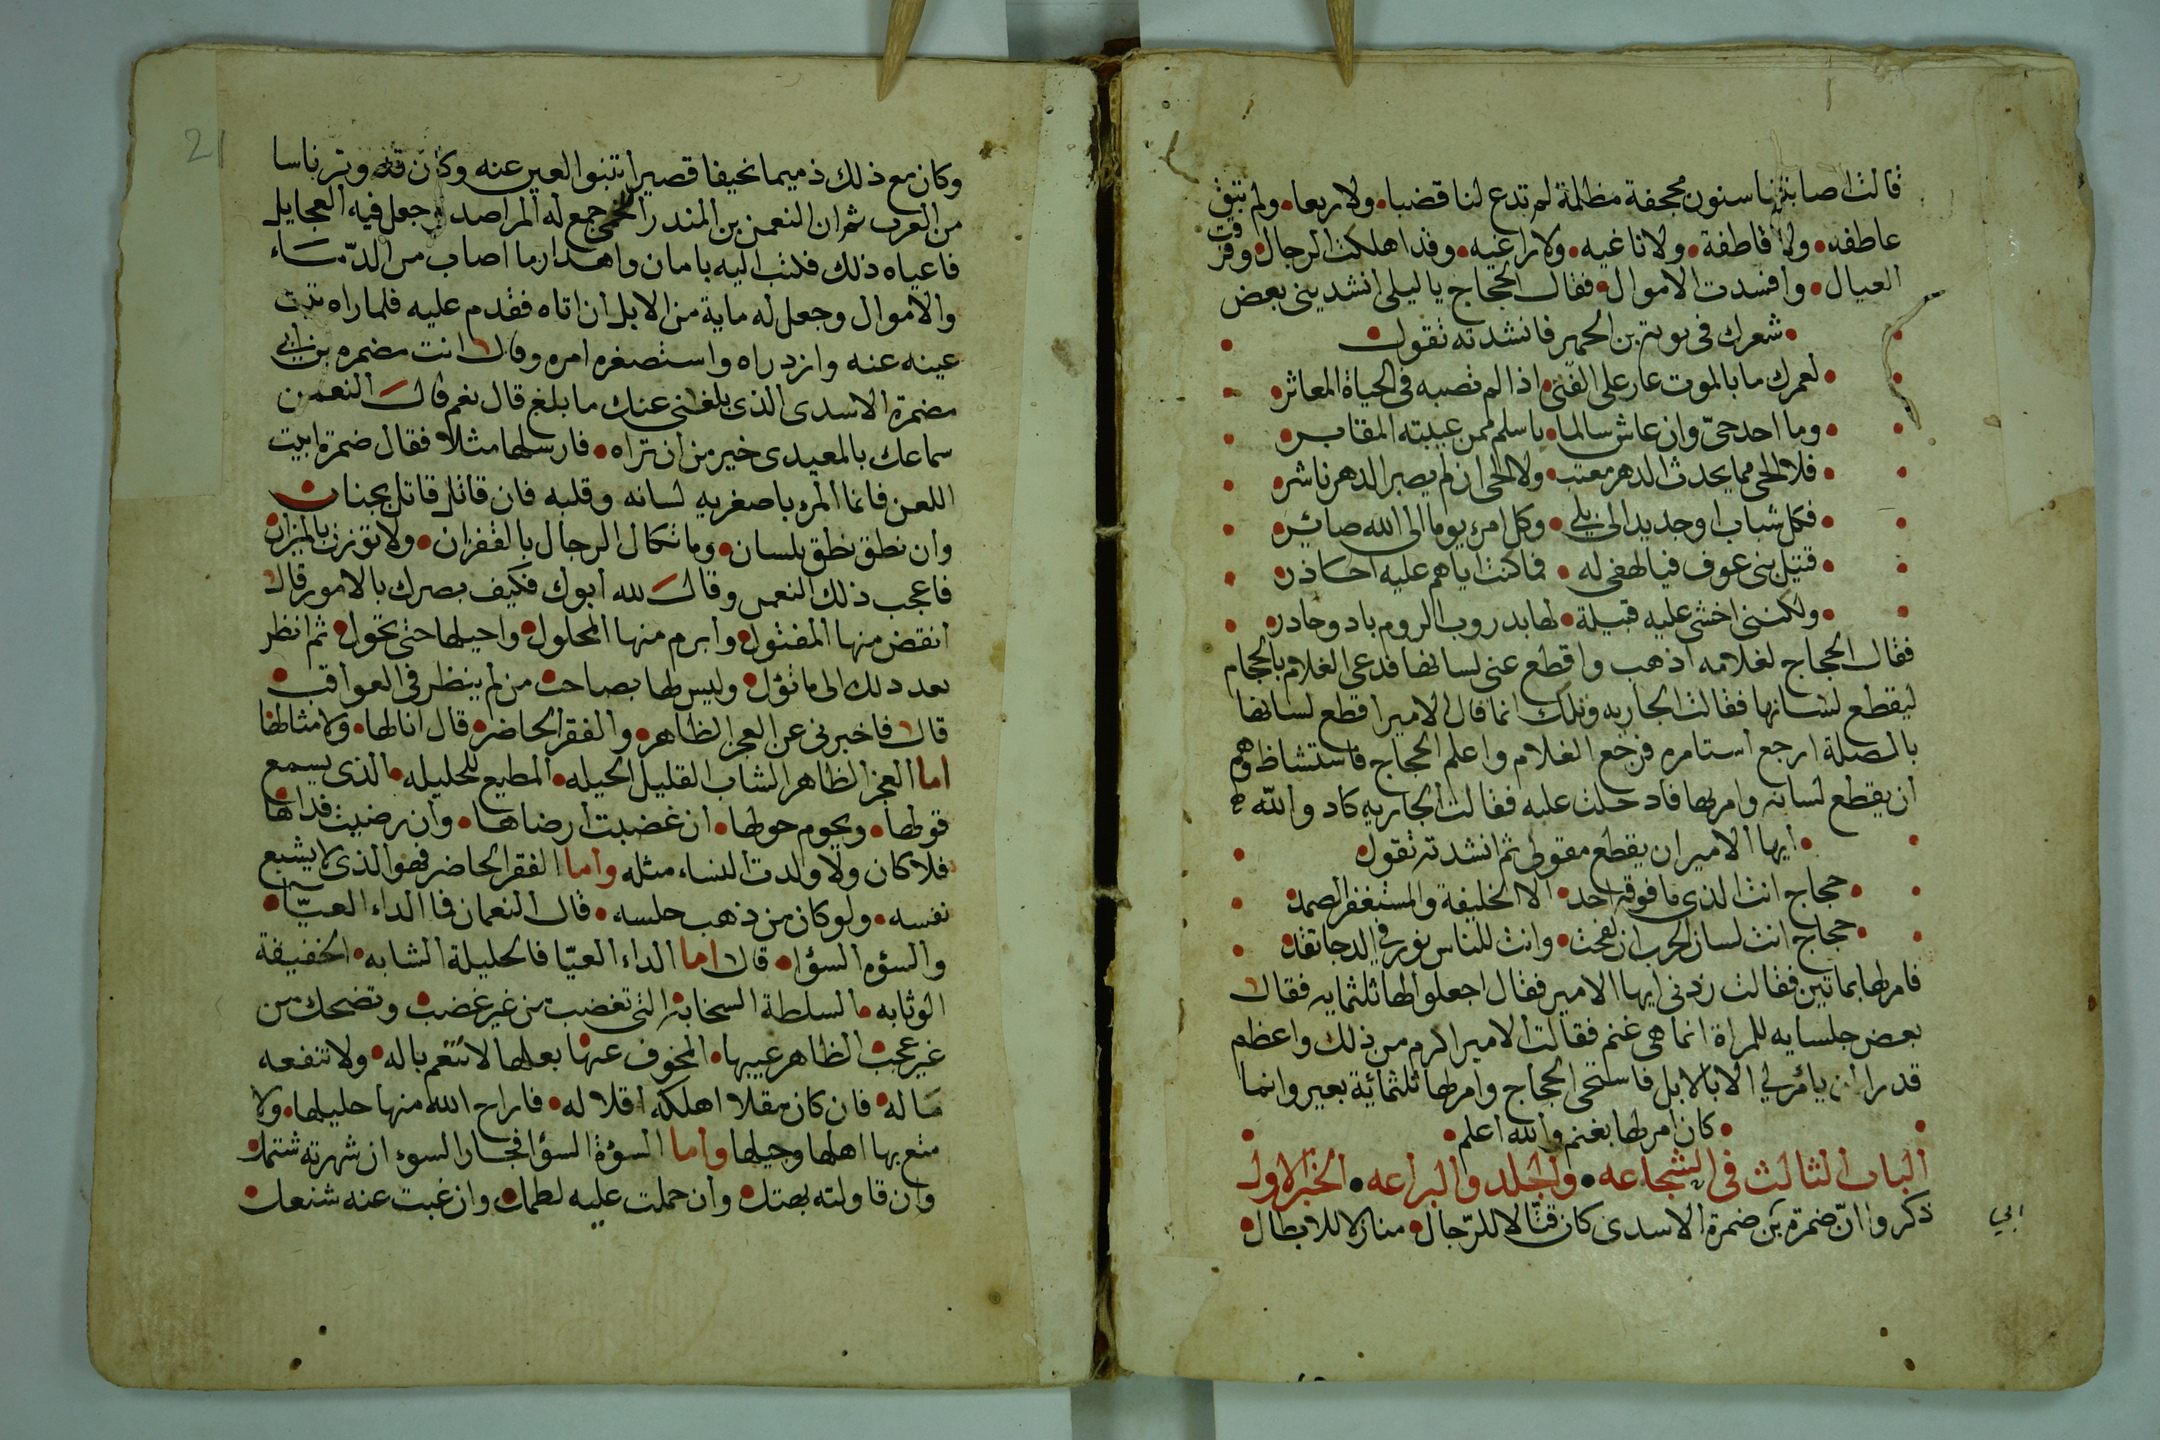 قالت اصابتنا سنون مجحفة مظلمة لم تدع لنا قضبا ولا ربعا ولم تبق
عاطفه ولا قاطفة ولا ثاغيه ولا راغيه وقد اهلكت الرجال وفرقت
العيال وافسدت الاموال فقال الحجاج ياليلى انشديني بعض
شعرك في توبتة بن الحمير فانشدته تقول
لعمرك ما بالموت عار على الفتى اذا لم تصبه في الحياة المعاثر
وما احد حيّ وان عاش سالما باسلم ممن غيبته المقابر
فلا الحي مما يحدث الدهر معتب ولا الحي ان لم يصبر الدهر ناشر
فكل شباب او جديد الى بلى وكل امرء يوما الى الله صائر
قتيل بني عوف فيا لهفي له فما كنت اياهم عليه احاذر
ولكنني اخشى عليه قبيلة لها بدروب الروم باد وحادر
فقال الحجاج لغلامه اذهب واقطع عني لسانها فدعى الغلام بالحجام
ليقطع لسانها فقالت الجاريه ويلك انما قال الامير اقطع لسانها
بالصلة ارجع استامره فرجع الغلام واعلم الحجاج فاستشاظ وهم
ان يقطع لسانه وامر بها فادخلت عليه فقالت الجاريه كاد والله
ايها الامير ان يقطع مقولي ثم انشدته تقول
حجاج انت الذي ما فوقه احد الا الخليفة والمستغفر الصمد
حجاج انت لسان الحرب ان لقحت وانت للناس نور في الدجا تقد
فامر لها بماتين فقالت زدني ايها الامير فقال اجعلوا لها ثلثمايه فقال
بعض جلسايه للمراة انما هي غنم فقالت الامير اكرم من ذلك واعظم
قدرا ان يامر لي الا بالابل فاستحى الحجاج وامر لها ثلثمائية بعير وانما
كان امر لها بغنم والله اعلم
الباب الثالث في الشجاعه والجلد والبراعه الخبر الاول
ذكروا انّ ضمرة بن ضمرة الاسدى كان قتّالا للرّجال منازلا للابطال
ابي
21
وكان مع ذلك ذميما نحيفا قصيرا تنبوا العين عنه وكان قد وتر ناسا
من العرب ثم ان النعمن بن المندر اللخمي جمع له المراصد وجعل فيه الجعايل
فاعياه ذلك فكتب اليه بامان واهدار ما اصاب من الدّماء
والاموال وجعل له ماية من الابل ان اتاه فقدم عليه فلما راه نبت
عينه عنه وازدراه واستصغره امره وقال انت ضمره بن ابي
ضمرة الاسدى الذي بلغني عنك ما بلغ قال نعم قال النعمن
سماعك بالمعيدى خير من ان تراه فارسلها مثلا فقال ضمرة ابيت
اللعن فانما المرء باصغريه لسانه وقلبه فان قاتل قاتل بجنان
وان نطق نطق بلسان وما تكال الرجال بالقفزان ولا توزن بالميزان
فاعجب ذلك النعمن وقال لله ابوك فكيف بصرك بالامور قال
انقض منها المفتول وابرم منها المحلول واحيلها حتى تحول ثم انظر
بعد ذلك الى ما تؤل وليس لها بصاحت من لم ينظر في العواقب
قال فاخبرني عن العجز الظاهر والفقر الحاضر قال انا لها ولامثالها
اما العجز الظاهر الشاب القليل الحيله المطيع للحليله الذي يسمع
قولها ويحوم حولها ان غضبت ارضاها وان رضيت فداها
فلا كان ولا ولدت النساء مثله واما الفقر الحاضر فهو الذي لا يشبع
نفسه ولو كان من ذهب حلسه قال النعمان فما الداء العيّا
والسؤه السؤا قال اما الداء العيّا فالحليلة الشابه الخفيفة
الوثابه السلطة السخابة التي تغضب من غير غضب وتضحك من
غير عجب الظاهر عيبها المخوف عنها بعلها لا تنعم باله ولا تنفعه
ماله فان كان مقلا اهلكه اقلاله فاراح الله منها حليلها ولا
متع بها اهلها وجيلها واما السؤة السؤا فجار السوء ان شهرته شتمك
وان قاولته بهتك وان حملت عليه لطمك وان غبت عنه شنعك